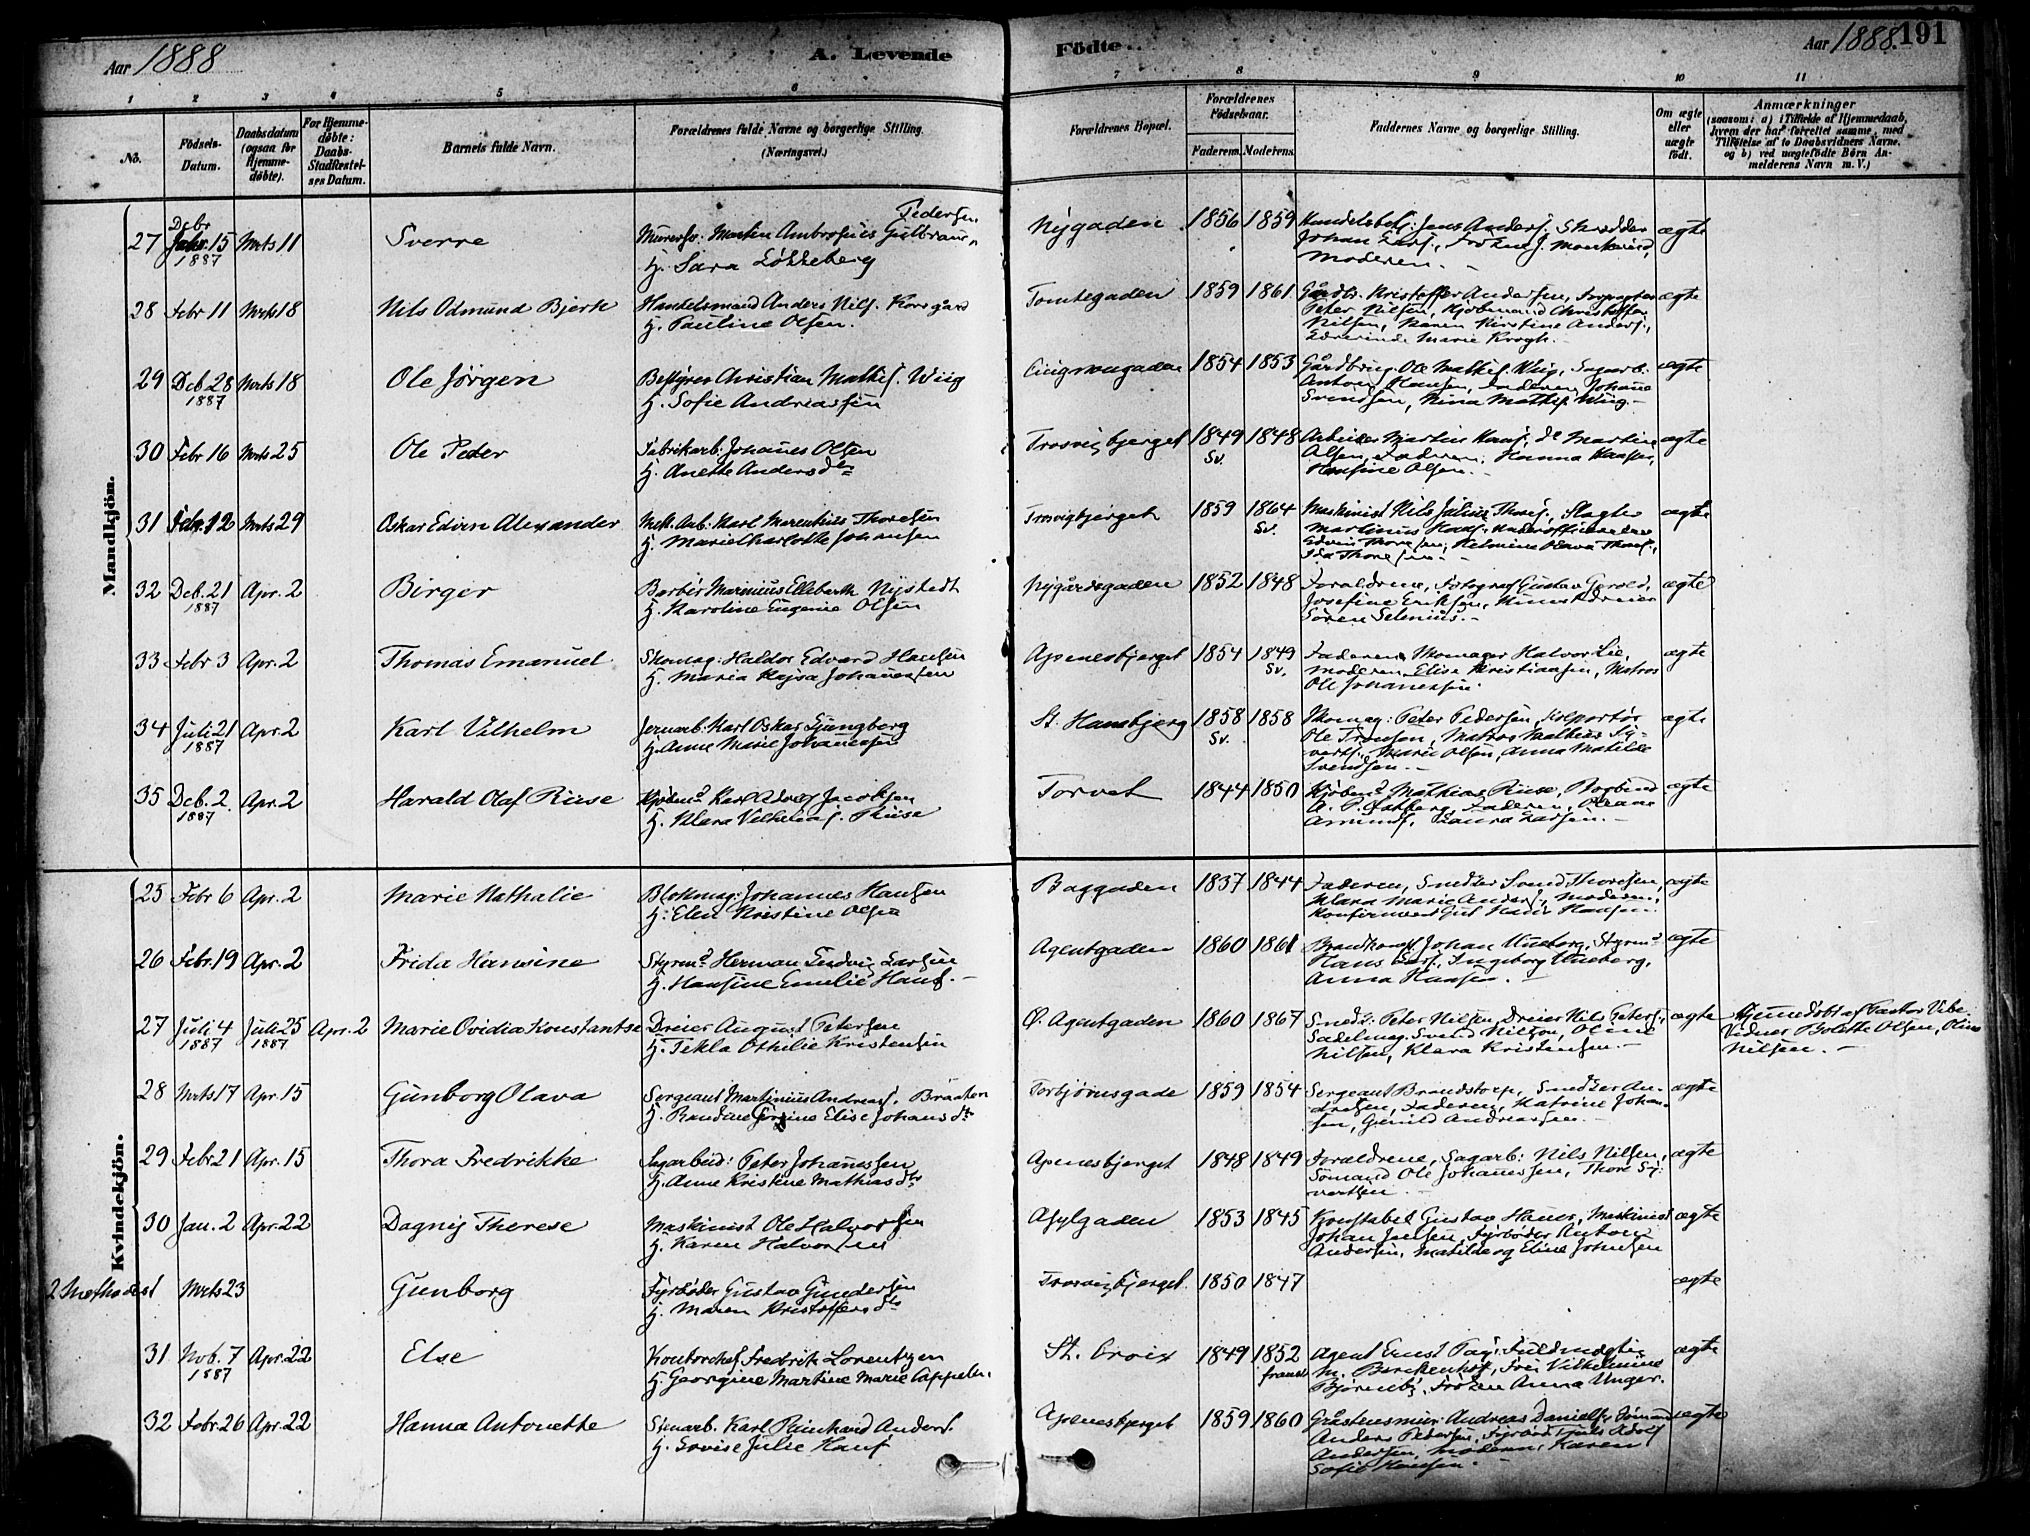 Aar 1888
A. Levende
Fødte
Aar 1888. 191
1 2 3 4 5 6
7 8 9 10 11
No.
Födsels-
Datum.
Daabsdatum
(ogsaa for
Hjemme-
døbte).
For Hjemme-
døbte:
Daabs-
Stadfæstel-
ses Datum.
Barnets fulde Navn.
Forældrenes fulde Navne og borgerlige Stilling.
(Næringsvei.)
Forældrenes Bopæl.
Forældrenes
Fødselsaar.
Faderens. Moderens.
Faddernes Navne og borgerlige Stilling.
Om ægte
eller
uægte
født.
Anmærkninger
(saasom: a) i Tilfælde af Hjemmedaab,
hvem der har forrettet samme, med
Tilføielse af to Daabsvidners Navne,
og b) ved uægtefødte Børn An-
melderens Navn m. V.)
Mandkjön.
27 Debr 15 1887 Mrts 11 Sverre
Pedersen
Murersv. Martin Ambrosius Gulbrans.
H. Sara Løkkeberg
Nygaden 1856 1859 Handelsbet. Jens Anders. Skrædder
Johan
Moderen. ægte
28 Febr 11 Mrts 18 Nils Odmund Bjerk
Handelsmand Anders Nils. Korsgård
H. Pauline Olsen.
Tomtegaden 1859 1861 Gårdbr. Kristoffer Andersen,
Peter Nilsen, Kjøbmand Christoffer
Nilsen, Maren Kirstine Anders.,
Lærerinde Marie Krogh. ægte
29 Deb. 28 1887 Mrts 18 Ole Jørgen
Bestyrer Christian Mathis. Wiig
H. Sofie Andreassen
1854 1853 Gårdbrug. Ole Mathis. Wiig, Sagarb.
Anton Hansen, Faderen, Johanne
Svendsen, Nina Mathis. Wiig. ægte
30 Febr 16 Mrts 25 Ole Peder
Fabrikarb. Johannes Olsen
H. Anette Andersdtr
Trosvigbjerget 1849 Sv. 1848 Arbeider Martin Hans. do Martin
Olsen, Faderen, Hanna Hansen,
Hansine Olsen. ægte
31 Febr. 12 Mrts 29 Oskar Edvin Alexander
Mek. Arb: Karl Marentius Thoresen
H. Marie Charlotte Johansen
Trosvigbjerget 1859 1864 Sv. Maskinist Nils Julius Thores., Slagter
Martinus Hans., Underofficer
Edvin Thoresen, Helmine Olava Thores.,
Ida Thoresen. ægte
32 Deb. 21 1887 Apr. 2 Birger
Barbér Marinius Ellebarth Nystedt
H. Karoline Eugenie Olsen
Nygårdsgaden 1852 1848 Forældrene, Fotograf Gustav
Josefine Eriksen,
Søren Selenius. ægte
33 Febr 3 Apr. 2 Thomas Emanuel
Skomag: Haldor Edvard Hansen
H. Maria Kajsa Johannessen
Apenesbjerget 1854 1849 Sv. Faderen, Skomager Halvor Lie,
Moderen, Elise Kristiansen, Matros
Ole Johannesen. ægte
34 Juli 21 1887 Apr. 2 Karl Vilhelm
Jernarb. Karl Oskar Ljungberg
H. Anne Marie Johannessen
St. Hansbjerg 1858 Sv. 1858 Skomag: Peter Pedersen, Kolportør
Ole Tronsen, Matros Mathias Sy-
verts., Marie Olsen, Anna Matilde
Svendsen. ægte
35 Deb. 2. 1887 Apr. 2 Harald Olaf Riise
Kjøbmd Karl Adolf Jacobsen
H. Klara Vilhelms. Riise
Torvet 1844 1850 Kjøbmd Mathias Riise, Bogbind.
A. P. Østberg, Faderen, Oleane
Amunds. Laura Larsen. ægte
Kvindekjön.
25 Febr 6 Apr. 2 Marie Nathalie
Blokmag: Johannes Hansen
H: Elen Kristine Olsen
Baggaden 1837 1844 Faderen, Snedker Svend Thoresen,
Klara Marie Anders., Moderen,
konfirmeret Gut Hansen. ægte
26 Febr. 19 Apr. 2 Frida Hansine
Styrmd Herman Ludvig Larsen
H. Hansine Emilie Hans.
Agentgaden 1860 1861 Johan Uneberg, Styrmd
Hans Lars., Ingeborg Uneberg,
Anna Hansen. ægte
27 Juli 4 1887 Juli 25 1887 Apr. 2 Marie Ovidia Konstantse
Dreier August Petersen
H. Tekla Othilie Kristensen
Ø. Agentgaden 1860 1867 Snedk: Peter Nilsen, Dreier Nils Peters.,
Sadelmag. Svend Nilsen, Oline
Nilsen, Klara Kristensen. ægte
Hjemmedøbt af Pastor Vibe.
Vidner Bolette Olsen, Oline
Nilsen.
28 Mrts 17 Apr. 15 Gunborg Olava
Sergeant Martinius Andreas. Braaten
H. Randine Elise Johansdtr
Torbjørnsgade 1859 1854 Sergeant Brandstorp, Snedker An-
dresen, Faderen, Katrine Johan-
sen, Gunild Andreassen. ægte
29 Febr 21 Apr. 15 Thora Fredrikke
Sagarbeid: Peter Johannessen
H. Anne Kristine Mathiasdtr
Apenesbjerget 1848 1849 Forældrene, Sagarb: Nils Nilsen,
Sømand Ole Johannessen, Thora Sy-
vertsen. ægte
30 Jan. 2 Apr. 22 Dagny Therese
Maskinist Ole Halvorsen
H. Karen Halvorsen
Asylgaden 1853 1845 Konstabel Gustav Hauer, Maskinist
Johan Juelsen, Fyrbøder Anton
Andersen, Matilde og Eline Johnsen ægte
2 Methodist Mrts 23 Gunborg
Fyrbøder Gustav Gundersen
H. Maren Kristoffersdtr
Trosvigbjerget 1850 1847 ægte
31 Nob. 7 1887 Apr. 22 Else
Kontorchef Fredrik Lorentzen
H. Georgine Martine Marie Cappelen.
St. Croix 1849 1852 fransk Agent Ernst Fuldmægtig
M. Berckenhof, Frøi Vilhelmine
Bjørneby, Frøken Anna Unger. ægte
32 Febr. 26 Apr. 22 Hanna Antonette
Stenarb. Karl Reinhard Anders.
H. Lovise Julie Hans.
Apenesbjerget 1859 1860 Gråstensmin: Andreas Daniels., Sømand
Anders Pedersen, Adolf
Andersen, Moderen, Karen
Sofie Hansen. ægte